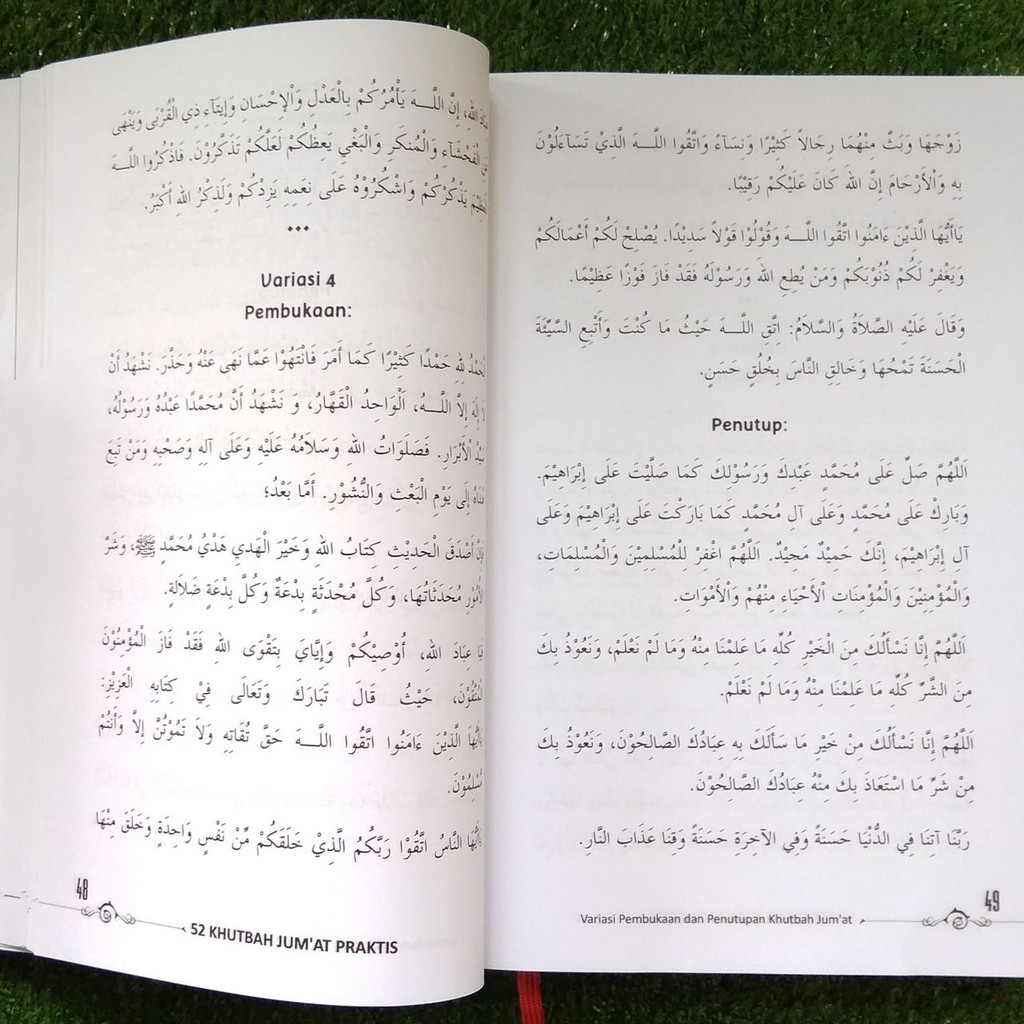 اللهِ، إِنَّ اللـــهَ يَأْمُرُكُمْ بِالْعَدْلِ وَاْلإِحْسَانِ وَإِيتَآءِ ذِي الْقُرْبَى وَيَنْهَى
الْفَحْشَآءِ وَالْمُنكَرِ وَالْبَغْيِ يَعِظُكُمْ لَعَلَّكُمْ تَذَكَّرُوْنَ. فَاذْكُرُوا اللـــهَ
يَذْكُرْكُمْ وَاشْكُرُوْهُ عَلَى نِعَمِهِ يَزِدْكُمْ وَلَذِكْرُ اللهِ أَكْبَرُ.
•••
Variasi 4
Pembukaan:
لِلهِ حَمْدًا كَثِيْرًا كَمَا أَمَرَ فَانْتَهُوْا عَمَّا نَهَى عَنْهُ وَحَذَّرَ. نَشْهَدُ أَنْ
إِلَهَ إِلاَّ اللـــهُ، اَلْوَاحِدُ الْقَهَّارُ، وَ نَشْهَدُ أَنَّ مُحَمَّدًا عَبْدُهُ وَرَسُوْلُهُ،
اْلأَبْرَارِ. فَصَلَوَاتُ اللهِ وَسَلاَمُهُ عَلَيْهِ وَعَلَى آلِهِ وَصَحْبِهِ وَمَنْ تَبِعَ
إِلَى يَوْمِ الْبَعْثِ وَالنُّشُوْرِ. أَمَّا بَعْدُ؛
أَصْدَقَ الْحَدِيْثِ كِتَابُ اللهِ وَخَيْرَ الْهَدىِ هَدْيُ مُحَمَّدٍ ﷺ، وَشَرَّ
مُحَدَثَاتُهَا، وَكُلَّ مُحْدَثَةٍ بِدْعَةٌ وَكُلَّ بِدْعَةٍ ضَلاَلَةٍ.
عِبَادَ اللهِ، أُوْصِيْكُمْ وَإِيَّايَ بِتَقْوَى اللهِ فَقَدْ فَازَ الْمُؤْمِنُوْنَ
حَيْثُ قَالَ تَبَارَكَ وَتَعَالَى فِيْ كِتَابِهِ الْعَزِيْزِ:
الَّذِيْنَ ءَامَنُوا اتَّقُوا اللـــهَ حَقَّ تُقَاتِهِ وَلاَ تَمُوْتُنَّ إِلاَّ وَأَنتُمْ
النَّاسُ اتَّقُوْا رَبَّكُمُ الَّذِيْ خَلَقَكُمْ مِّنْ نَفْسٍ وَاحِدَةٍ وَخَلَقَ مِنْهَا
48
52 KHUTBAH JUM'AT PRAKTIS
زَوْجَهَا وَبَثَّ مِنْهُمَا رِجَالاً كَثِيْرًا وَنَسَآءً وَاتَّقُوا اللـــهَ الَّذِيْ تَسَآءَلُوْنَ
بِهِ وَاْلأَرْحَامَ إِنَّ اللهَ كَانَ عَلَيْكُمْ رَقِيْبًا.
يَاأَيُّهَا الَّذِيْنَ ءَامَنُوا اتَّقُوا اللـــهَ وَقُوْلُوْا قَوْلاً سَدِيْدًا. يُصْلِحْ لَكُمْ أَعْمَالَكُمْ
وَيَغْفِرْ لَكُمْ ذُنُوْبَكُمْ وَمَنْ يُطِعِ اللهَ وَرَسُوْلَهُ فَقَدْ فَازَ فَوْزًا عَظِيْمًا.
وَقَالَ عَلَيْهِ الصَّلاَةُ وَالسَّلاَمُ: اِتَّقِ اللـــهَ حَيْثُ مَا كُنْتَ وَأَتْبِعِ السَّيِّئَةَ
الْحَسَنَةَ تَمْحُهَا وَخَالِقِ النَّاسَ بِخُلُقٍ حَسَنٍ.
Penutup:
اَللَّهُمَّ صَلِّ عَلَى مُحَمَّدٍ عَبْدِكَ وَرَسُوْلِكَ كَمَا صَلَّيْتَ عَلَى إِبْرَاهِيْمَ.
وَبَارِكْ عَلَى مُحَمَّدٍ وَعَلَى آلِ مُحَمَّدٍ كَمَا بَارَكْتَ عَلَى إِبْرَاهِيْمَ وَعَلَى
آلِ إِبْرَاهِيْمَ، إِنَّكَ حَمِيْدٌ مَجِيْدٌ. اَللَّهُمَّ اغْفِرْ لِلْمُسْلِمِيْنَ وَالْمُسْلِمَاتِ،
وَالْمُؤْمِنِيْنَ وَالْمُؤْمِنَاتِ الْأَحْيَاءِ مِنْهُمْ وَالْأَمْوَاتِ.
اَللَّهُمَّ إِنَّا نَسْأَلُكَ مِنَ الْخَيْرِ كُلِّهِ مَا عَلِمْنَا مِنْهُ وَمَا لَمْ نَعْلَمْ، وَنَعُوْذُ بِكَ
مِنَ الشَّرِّ كُلِّهِ مَا عَلِمْنَا مِنْهُ وَمَا لَمْ نَعْلَمْ.
اَللَّهُمَّ إِنَّا نَسْأَلُكَ مِنْ خَيْرِ مَا سَأَلَكَ بِهِ عِبَادُكَ الصَّالِحُوْنَ، وَنَعُوْذُ بِكَ
مِنْ شَرِّ مَا اسْتَعَاذَ بِكَ مِنْهُ عِبَادُكَ الصَّالِحُوْنَ.
رَبَّنَا آتِنَا فِي الدُّنْيَا حَسَنَةً وَفِي الآخِرَةِ حَسَنَةً وَقِنَا عَذَابَ النَّارِ.
Variasi Pembukaan dan Penutupan Khutbah Jum'at
49